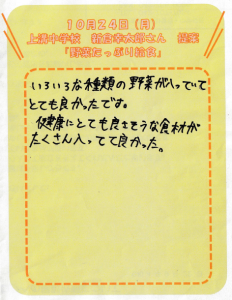 10月24日(月)
上溝中学校 新倉幸太郎さん 提案
「野菜たっぷり給食」
いろいろな種類の野菜が入っていて
とても良かったです。
健康にとても良さそうな食材が
たくさん入ってて良かった。